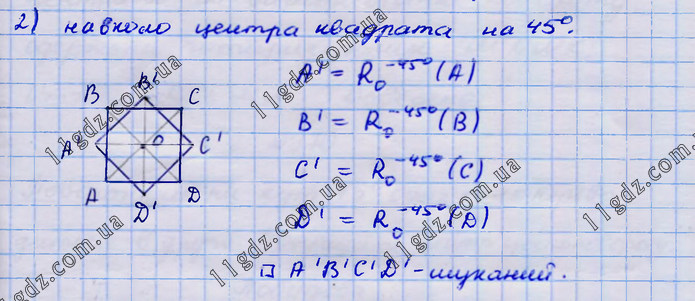 2) навколо центра квадрата на 45°.
A' = R₀⁻⁴⁵°(A)
B' = R₀⁻⁴⁵°(B)
C' = R₀⁻⁴⁵°(C)
D' = R₀⁻⁴⁵°(D)
□ A'B'C'D' - шуканий.
B B' C
A' O C'
A D' D
11gdz.com.ua
11gdz.com.ua
11gdz.com.ua
11gdz.com.ua
11gdz.com.ua
11gdz.com.ua
11gdz.com.ua